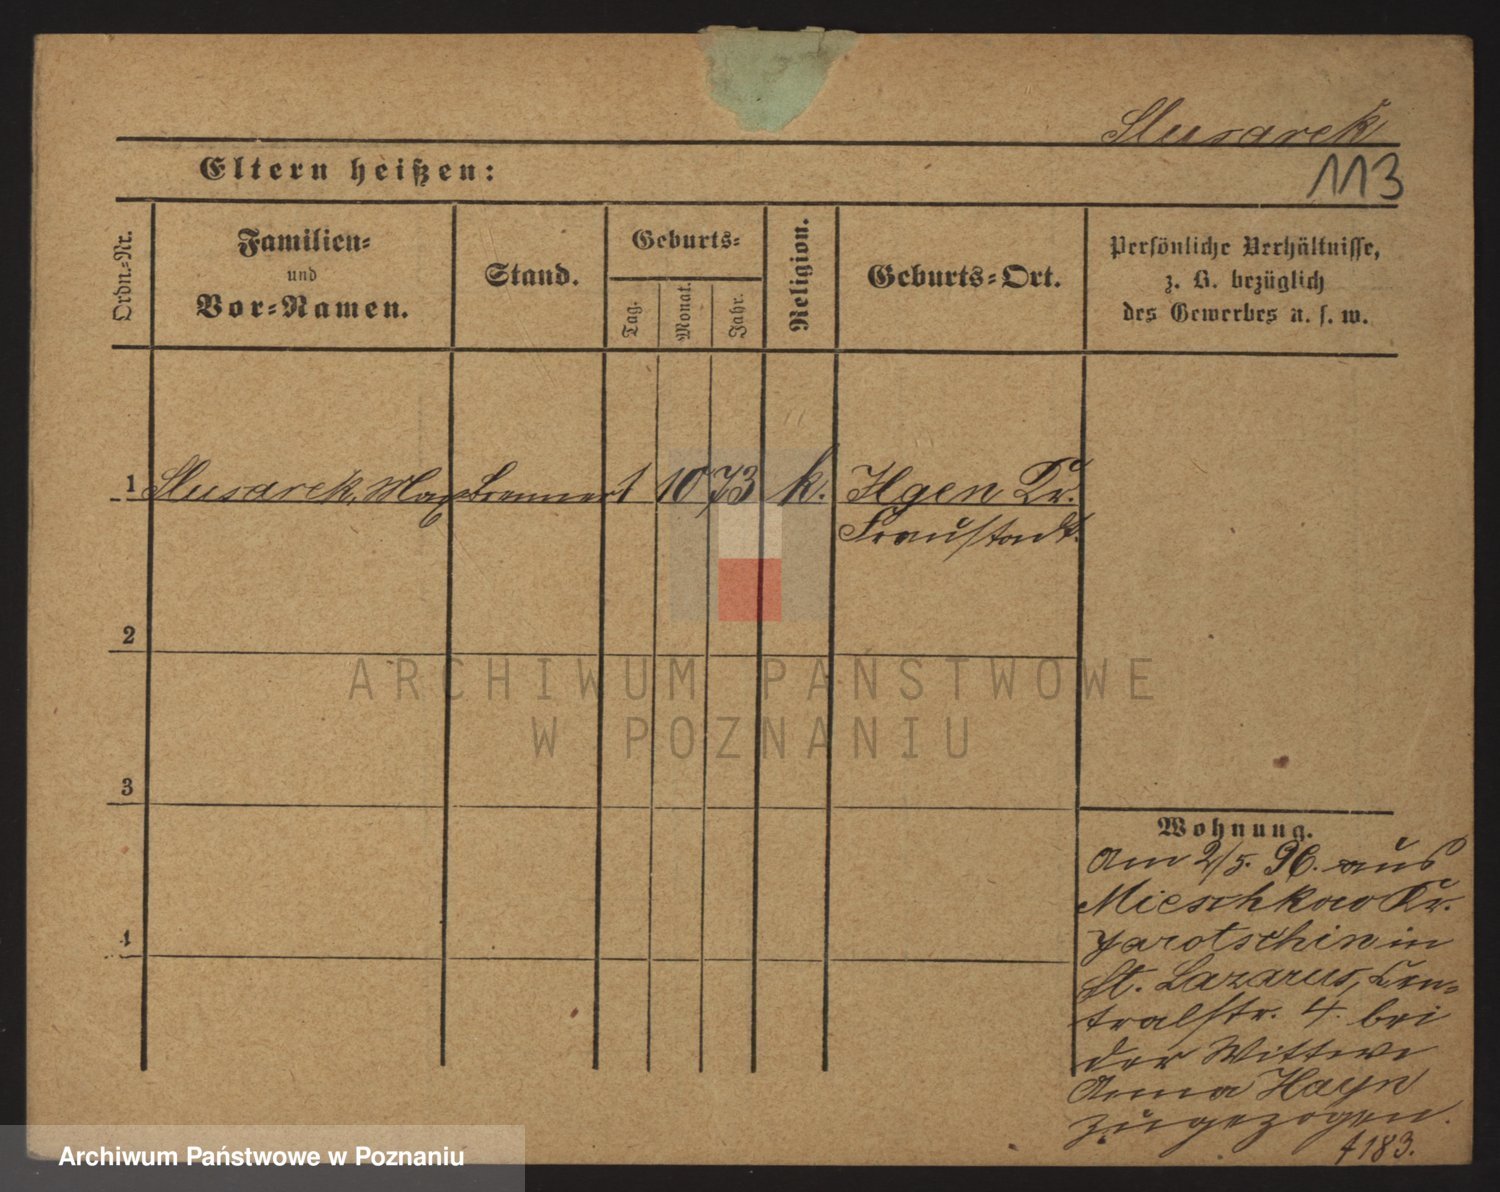 Slusarek
113
Eltern heißen:
Ordn.-Nr.
Familien-
und
Vor-Namen.
Stand.
Geburts-
Tag.
Monat.
Jahr.
Religion.
Geburts-Ort.
Persönliche Verhältnisse,
z. B. bezüglich
des Gewerbes u. s. w.
1 Slusarek, Max Brenner 1 10 73 k. Ilgen Kr.
Fraustadt.
2
ARCHIWUM PAŃSTWOWE
W POZNANIU
3
4
Wohnung.
Am 2/5. 96. aus
Mieschkow Kr.
Jarotschin in
St. Lazarus, Cen-
tralstr. 4. bei
der Wittwe
Anna Hayn
zugezogen.
4183.
Archiwum Państwowe w Poznaniu